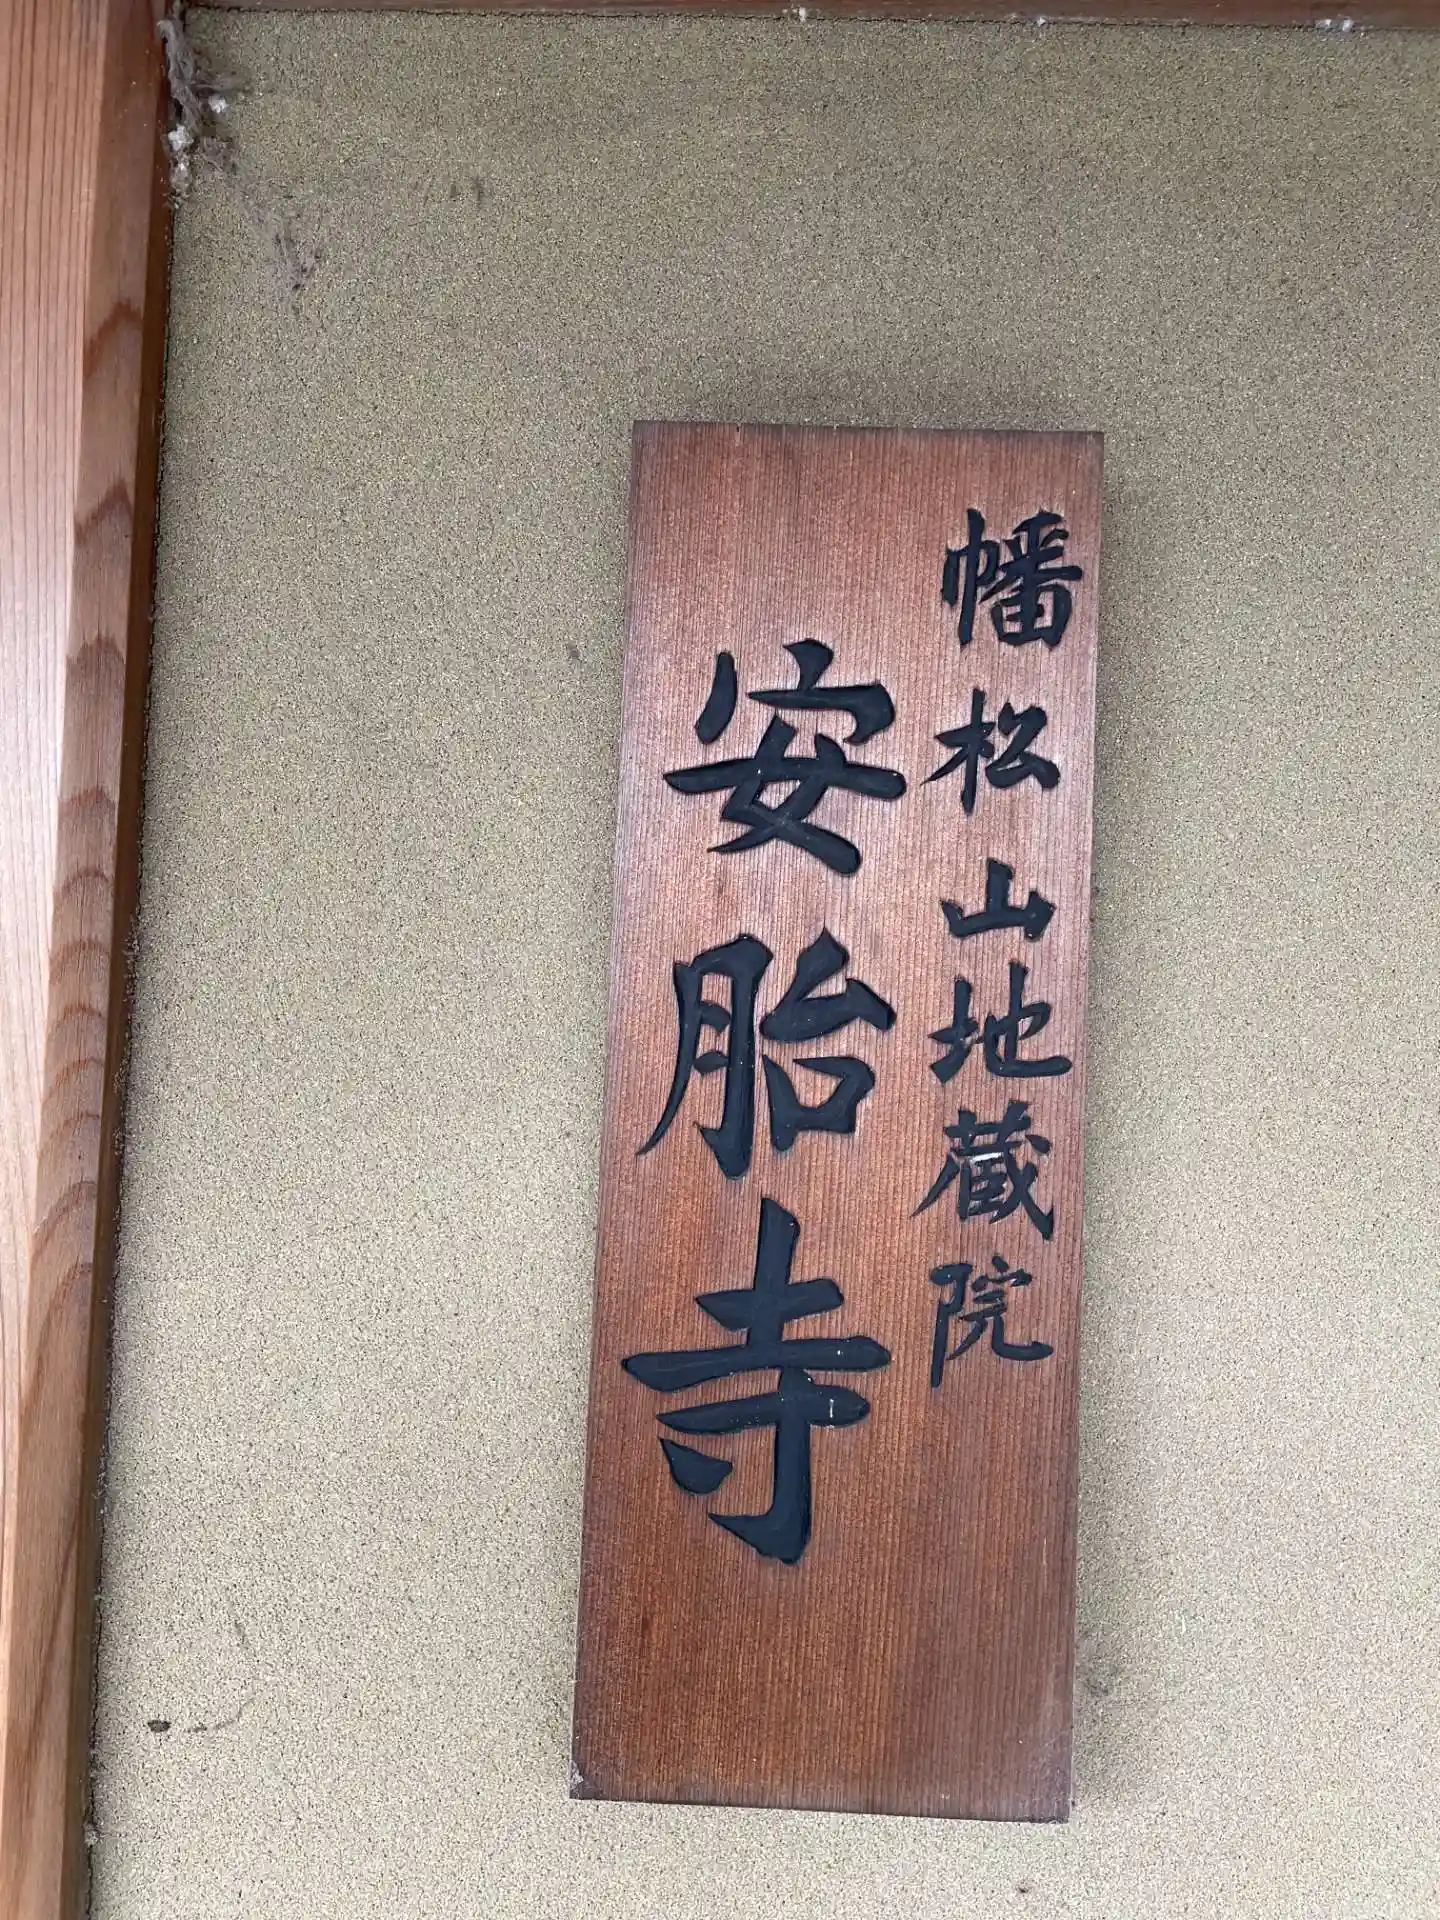 幡松山地蔵院
安胎寺